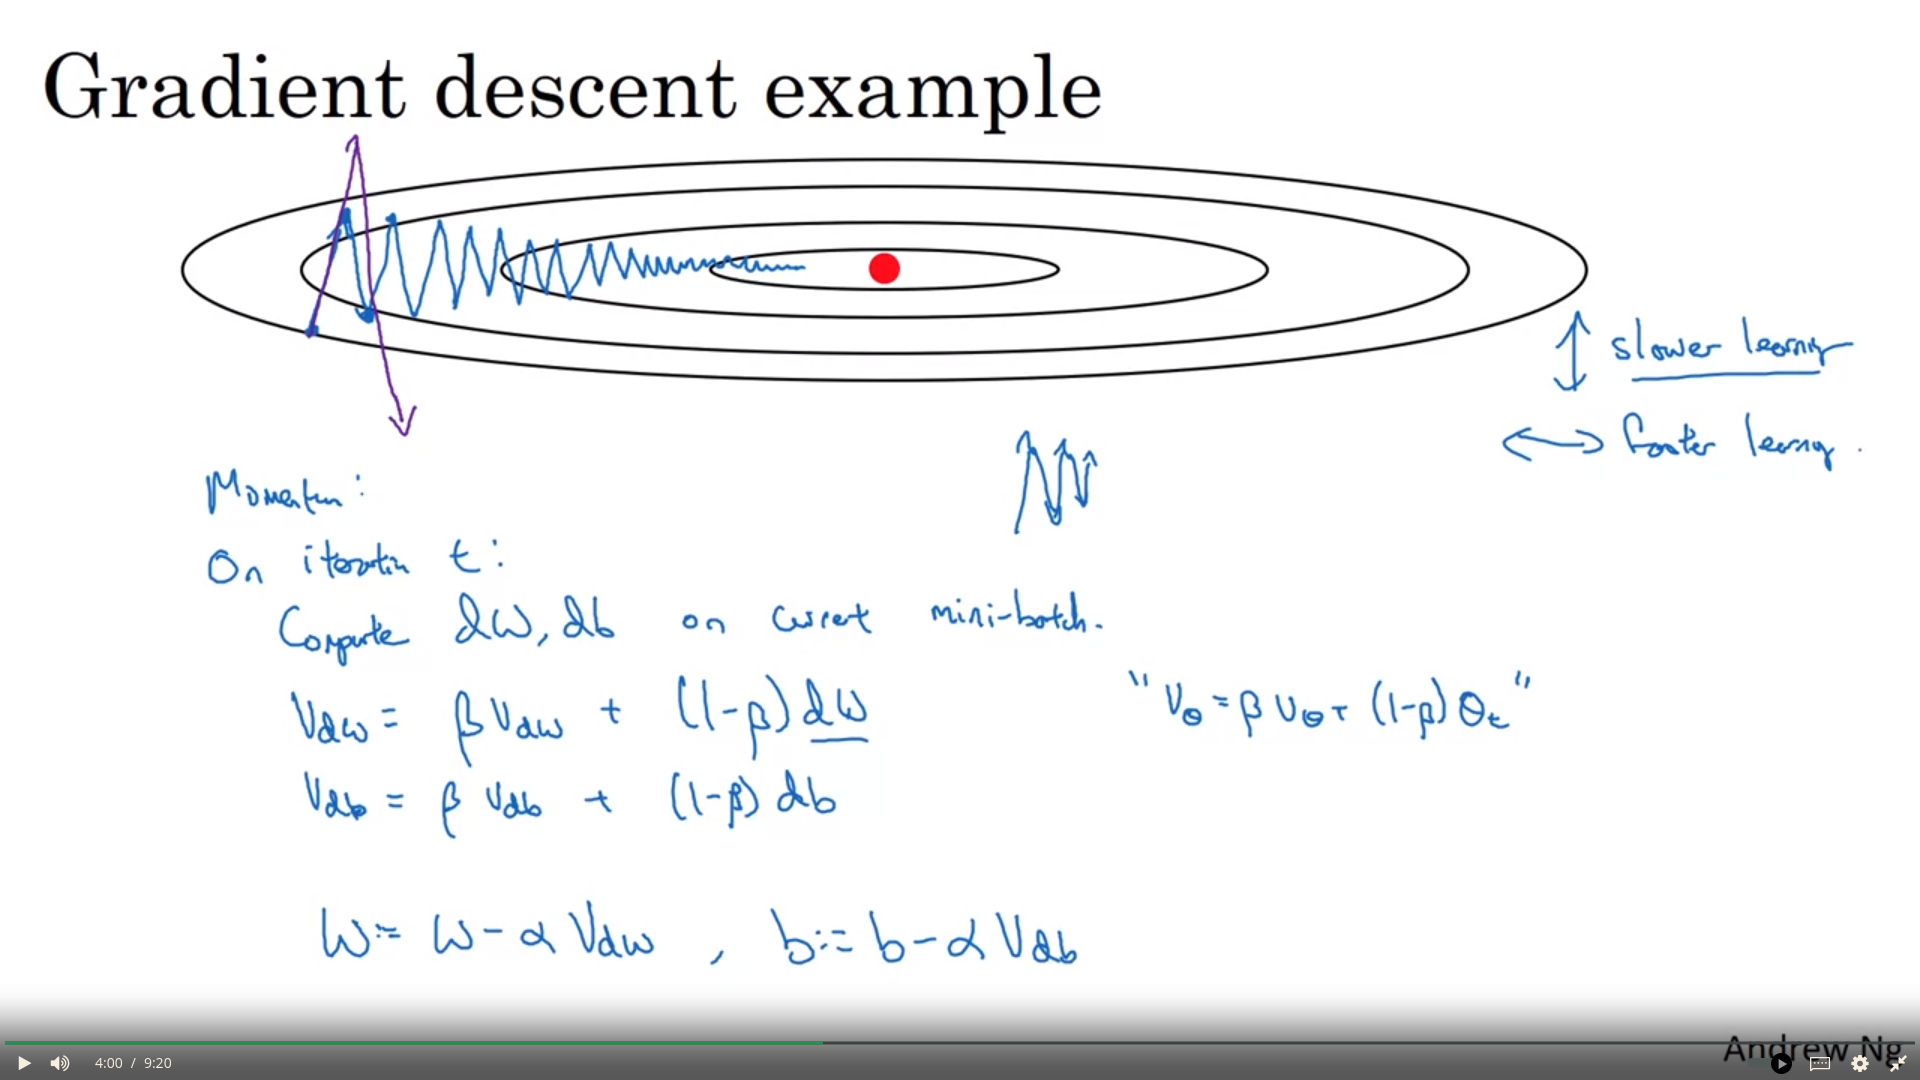 Gradient descent example
slower learning
faster learning.
Momentum:
On iteration t:
Compute dW, db on current mini-batch.
Vdw = βVdw + (1-β)dW
"Vθ = βVθ + (1-β)θt"
Vdb = βVdb + (1-β)db
W:= W - αVdw , b:= b - αVdb
Andrew Ng
4:00 / 9:20